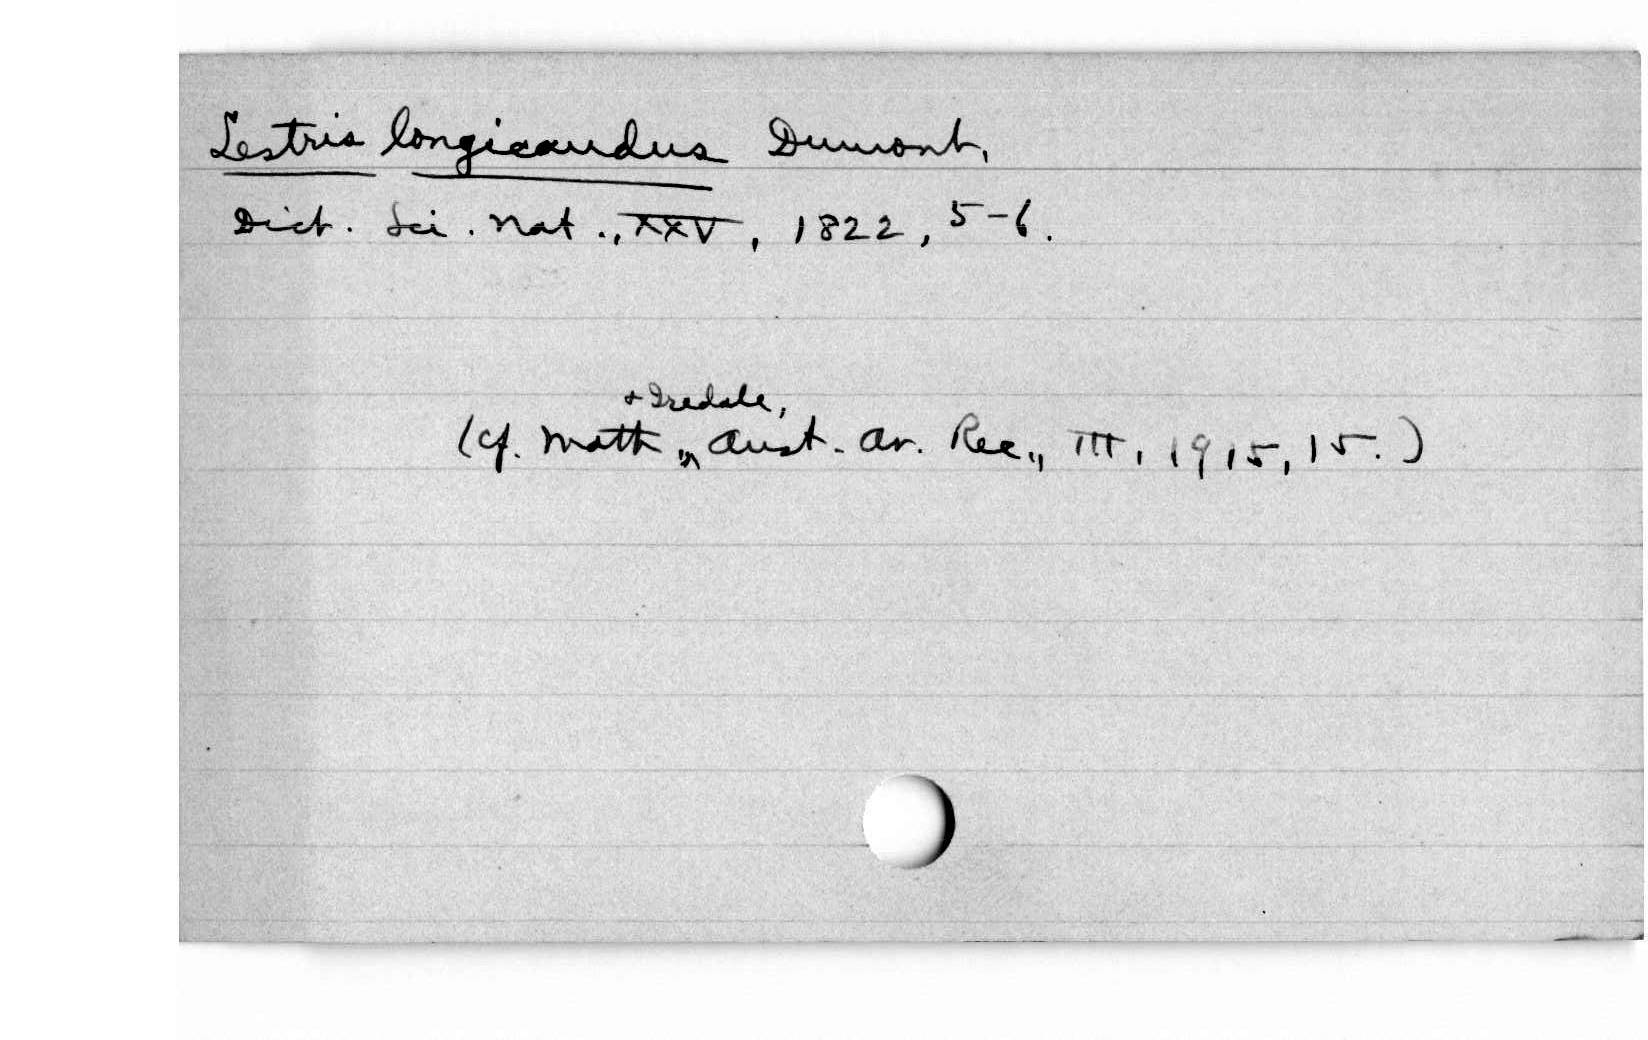 Lestris longicaudus Dumont,
Dict. Sci. Nat., XXV, 1822, 5-6.
+ Iredale,
(cf. Math., Aust. Av. Rec., III, 1915, 15.)